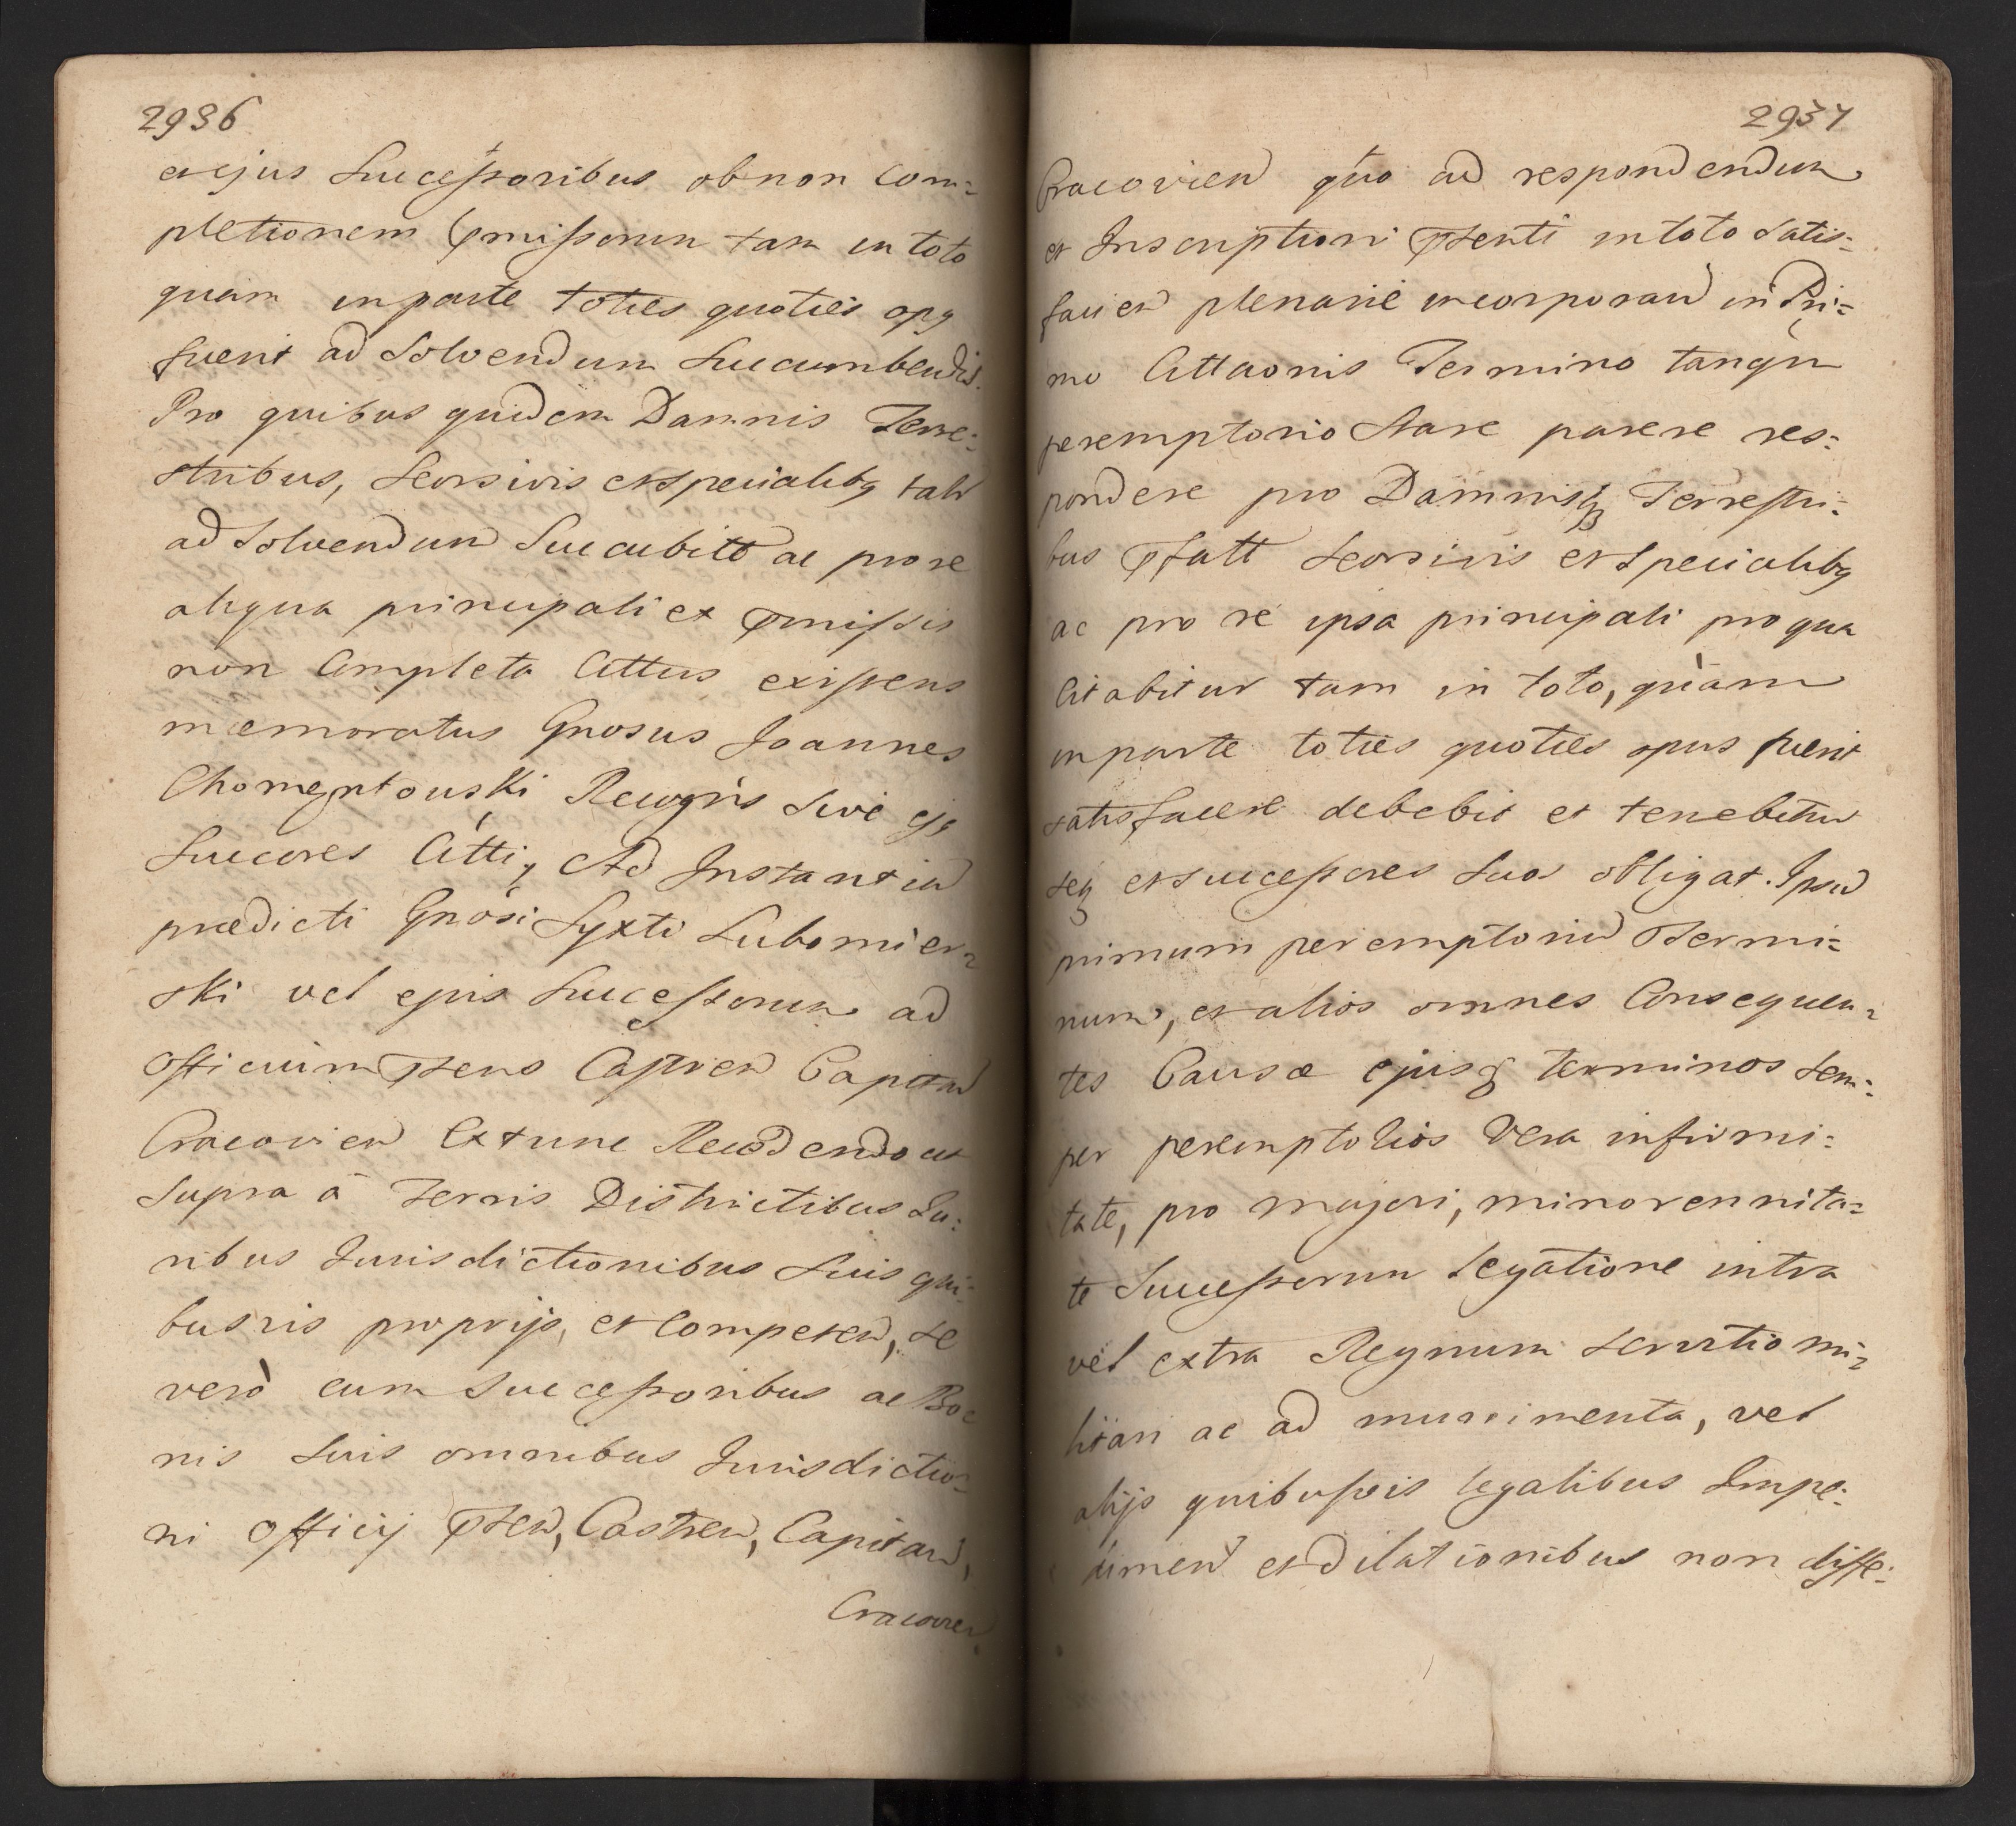 2936
et ejus Successoribus ob non Com=
pletionem pmissorum tam in toto
quam in parte toties quoties opq
fuerit ad Solvendum Succumbendis.
Pro quibus quidem Damnis Terre=
stribus, Seorsivis et specialibq talr
ad Solvendum Succubitt ac pro re
aliqua principali ex pmissis
non Completa Cittus existens
memoratus Gnosus Joannes
Chomentouski Recogns Sive ejq
Succores Citti, Ad Instantia
prædicti Gnosi Syxti Lubomier=
ski vel ejus Successorum ad
Officium psens Castren Capitan
Cracovien Ex tunc Recedendo ut
Supra à Terris Districtibus Ju=
ribus Jurisdictionibus Suis qui=
busvis proprijs, et Competen, Se
verò cum Successoribus ac Bo=
nis Suis omnibus Jurisdictio=
ni Officij psen, Castren, Capitan,
Cracovien
2937
Cracovien quo ad respondendum
et Inscriptioni psenti in toto Satis=
facien plenarie incorporan in Pri=
mo Cittaonis Termino tanqm
peremptorio Stare parere res=
pondere pro Damnisq Terrestri=
bus pfatt Seorsivis et Specialibq
ac pro re ipsa principali pro qua
Citabitur tam in toto, quàm
in parte toties quoties opus fuerit
satisfacere debebit et tenebitur
seq et successores suos obligat. Ipsu
primum peremptoriu Termi=
num, et alios omnes Consequen=
tes Causæ ejusq terminos Sem=
per peremptorios Vera infirmi=
tate, pro majori, minorennita=
te Successorum legatione intra
vel extra Regnum servitio mi=
litari ac ad munimenta, vel
alijs quibusvis legalibus Impe=
dimen et dilationibus non diffe=